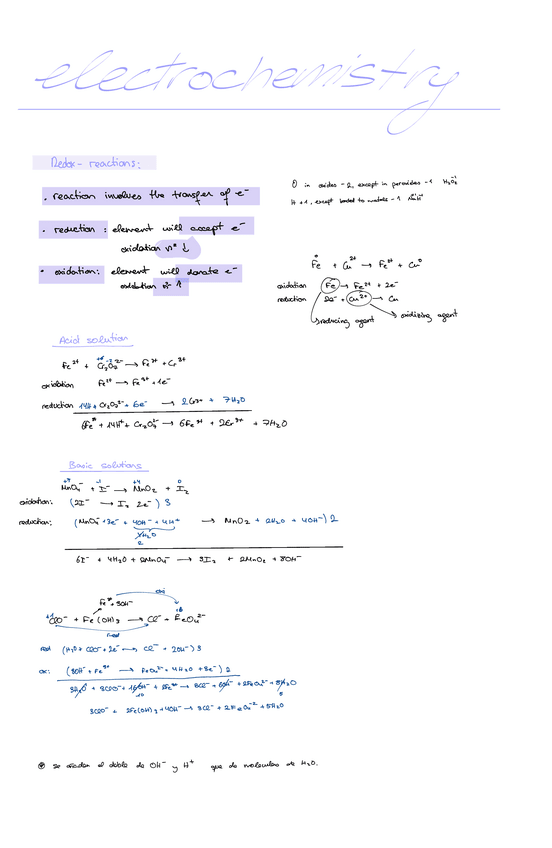 electrochemistry
Redox - reactions:
. reaction involves the transfer of e⁻
. reduction : element will accept e⁻
oxidation nº ↓
• oxidation: element will donate e⁻
oxidation nº ↑
O in oxides -2, except in peroxides -1 H₂O₂
H +1, except bonded to metals -1
Fe + Cu²⁺ → Fe²⁺ + Cu⁰
oxidation Fe → Fe²⁺ + 2e⁻
reduction 2e⁻ + Cu²⁺ → Cu
reducing agent oxidising agent
Acid solution
Fe²⁺ + Cr₂O₇²⁻ → Fe³⁺ + Cr³⁺
oxidation Fe²⁺ → Fe³⁺ + 1e⁻
reduction 14H⁺ + Cr₂O₇²⁻ + 6e⁻ → 2Cr³⁺ + 7H₂O
+ 14H⁺ + Cr₂O₇²⁻ → 6Fe³⁺ + 2Cr³⁺ + 7H₂O
Basic solutions
MnO₄⁻ + I⁻ → MnO₂ + I₂
oxidation: (2I⁻ → I₂ 2e⁻) 3
reduction: (MnO₄⁻ + 3e⁻ + 4OH⁻ + 4H⁺ → MnO₂ + 2H₂O + 4OH⁻) 2
6I⁻ + 4H₂O + 2MnO₄⁻ → 3I₂ + 2MnO₂ + 8OH⁻
oxi
Fe³⁺ + 3OH⁻
ClO⁻ + Fe(OH)₃ → Cl⁻ + FeO₄²⁻
red
red (H₂O + ClO⁻ + 2e⁻ → Cl⁻ + 2OH⁻) 3
ox: (8OH⁻ + Fe³⁺ → FeO₄²⁻ + 4H₂O + 3e⁻) 2
3H₂O + 3ClO⁻ + 16OH⁻ + 2Fe³⁺ → 3Cl⁻ + 6OH⁻ + 2FeO₄²⁻ + 8H₂O
10 5
3ClO⁻ + 2Fe(OH)₃ + 4OH⁻ → 3Cl⁻ + 2FeO₄⁻² + 5H₂O
se añaden el doble de OH⁻ y H⁺ que de moleculas de H₂O.